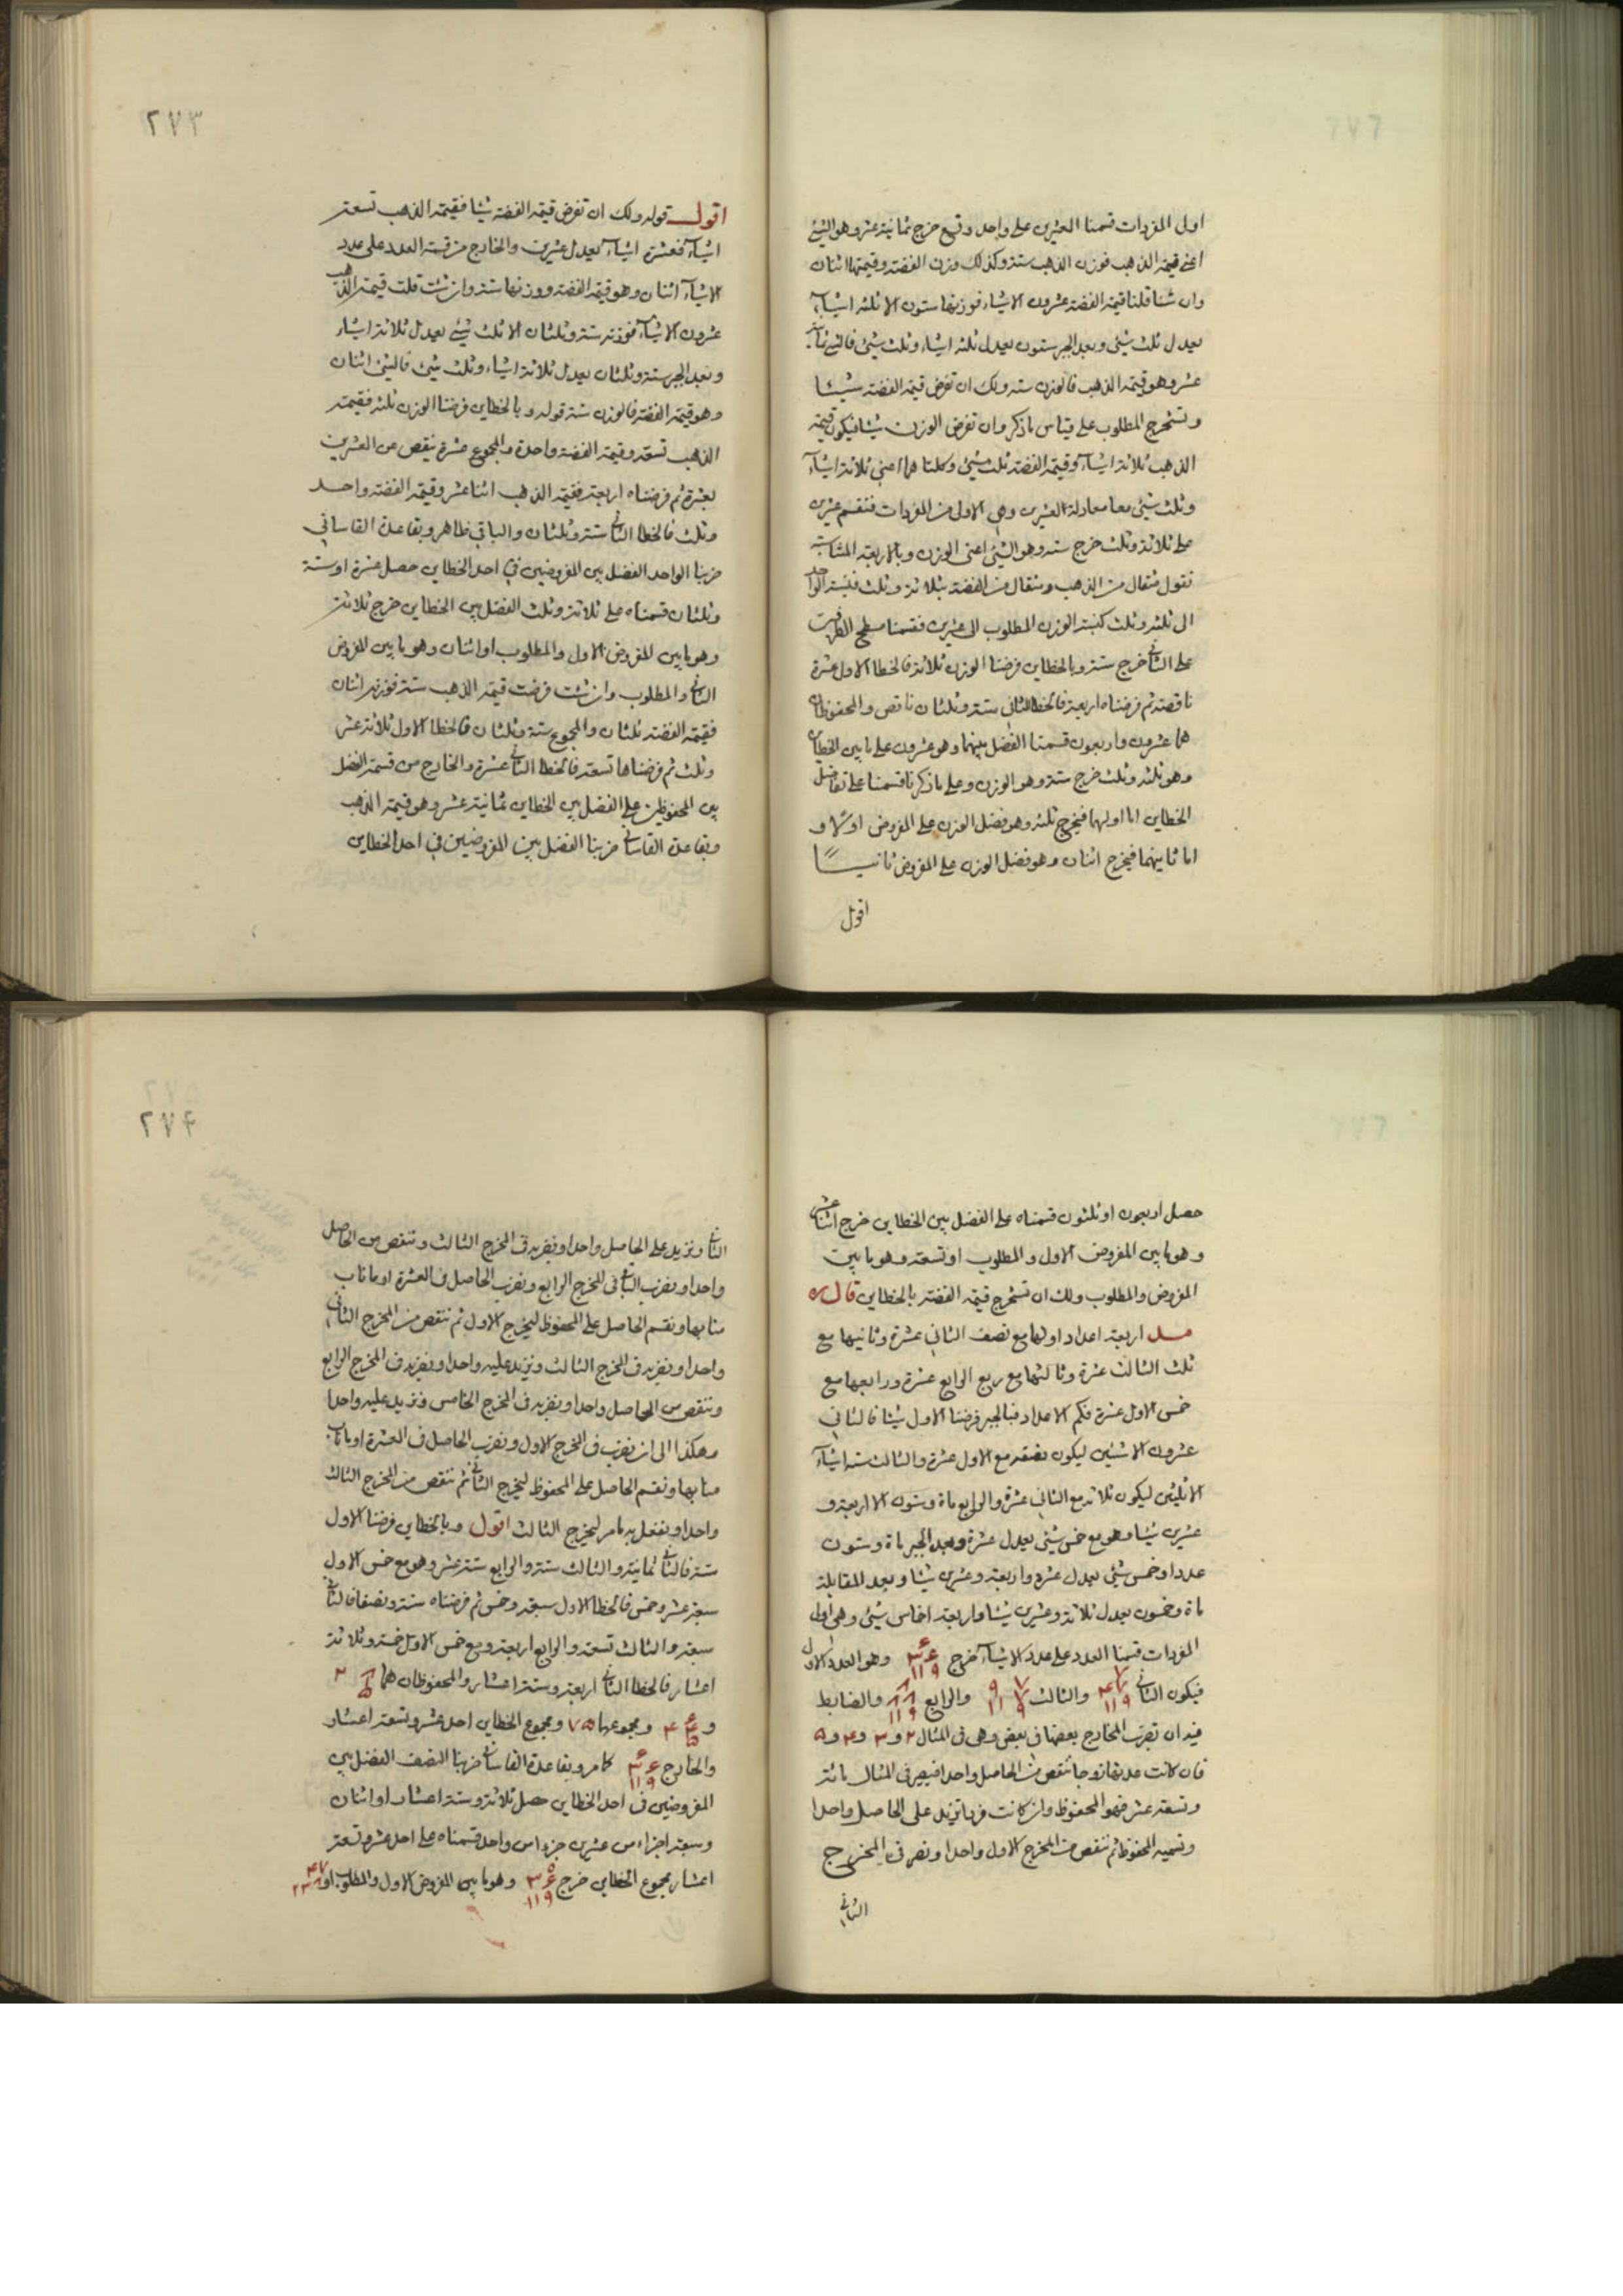 اول المفردات قسمنا العشرين على واحد وتسع خرج ثمانية عشر وهو الشئ
اعنى قيمة الذهب فوزن الذهب ستة وكذلك وزن الفضة وقيمتها اثنان
وان شئنا قلنا قيمة الفضة عشرون الا شيئا فوزنها ستون الا ثلثة اشياء
يعدل ثلث شئ وبعد الجبر ستون يعدل ثلثة اشياء وثلث شئ فالشئ ثمانية
عشر وهو قيمة الذهب فالوزن ستة ولك ان تفرض قيمة الفضة شيئا
وتستخرج المطلوب على قياس ما ذكر وان تفرض الوزن شيئا فيكون قيمة
الذهب ثلاثة اشياء وقيمة الفضة ثلث شئ وكلتا هما اعنى ثلاثة اشياء
وثلث شئ معا معادلة العشرين وهى الاولى من المفردات فنقسم عشرين
على ثلاثة وثلث خرج ستة وهو الشئ اعنى الوزن وبالاربعة المتناسبة
نقول مثقال من الذهب ومثقال من الفضة بثلاثة وثلث فنسبة الواحد
الى ثلثة وثلث كنسبة الوزن المطلوب الى عشرين فقسمنا مسطح الطرفين
على الثانى خرج ستة وبالخطاين فرضنا الوزن ثلاثة فالخطا الاول عشرة
ناقصة ثم فرضناه اربعة فالخطا الثانى ستة وثلثان ناقص والمحفوظان
هما عشرون واربعون قسمنا الفضل بينهما وهو عشرون على ما بين الخطاين
وهو ثلثة وثلث خرج ستة وهو الوزن وعلى ما ذكرنا قسمنا على تفاضل
الخطاين اما اولهما فيخرج ثلثة وهو فضل الوزن على المفروض اولا و
اما ثانيهما فيخرج اثنان وهو فضل الوزن على المفروض ثانيا
اقول
٢٧٣
اقول قوله ولك ان تفرض قيمة الفضة شيئا فقيمة الذهب تسعة
اشياء فعشرة اشياء يعدل عشرين والخارج من قسمة العدد على عدد
الاشياء اثنان وهو قيمة الفضة ووزنها ستة وان شئت قلت قيمة الذهب
عشرون الا شيئا فوزنه ستة وثلثان الا ثلث شئ يعدل ثلاثة اشياء
وبعد الجبر ستة وثلثان يعدل ثلاثة اشياء وثلث شئ فالشئ اثنان
وهو قيمة الفضة فالوزن ستة قوله وبالخطاين فرضنا الوزن ثلثة فقيمة
الذهب تسعة وقيمة الفضة واحدة والمجموع عشرة ينقص عن العشرين
بعشرة ثم فرضناه اربعة فقيمة الذهب اثنا عشر وقيمة الفضة واحد
وثلث فالخطا الثانى ستة وثلثان والباقى ظاهر وبقاعدة القاسانى
ضربنا الواحد الفضل بين المفروضين فى احد الخطاين حصل عشرة او ستة
وثلثان قسمناه على ثلاثة وثلث الفضل بين الخطاين خرج ثلاثة
وهو ما بين المفروض الاول والمطلوب او اثنان وهو ما بين المفروض
الثانى والمطلوب وان شئت فرضت قيمة الذهب ستة فوزنه اثنان
فقيمة الفضة ثلثان والمجموع ستة وثلثان فالخطا الاول ثلاثة عشر
وثلث ثم فرضناها تسعة فالخطا الثانى عشرة والخارج من قسمة الفضل
بين المحفوظين على الفضل بين الخطاين ثمانية عشر وهو قيمة الذهب
وبقاعدة القاسانى ضربنا الفضل بين المفروضين فى احد الخطاين
حصل اربعون او ثلثون قسمناه على الفضل بين الخطاين خرج اثنا عشر
وهو ما بين المفروض الاول والمطلوب او تسعة وهو ما بين
المفروض والمطلوب ولك ان تستخرج قيمة الفضة بالخطاين قال ره
مسله اربعة اعداد اولها مع نصف الثانى عشرة وثانيها مع
ثلث الثالث عشرة وثالثها مع ربع الرابع عشرة ورابعها مع
خمس الاول عشرة فكم الاعداد فبالجبر فرضنا الاول شيئا فالثانى
عشرون الا شيئين ليكون نصفه مع الاول عشرة والثالث ستة اشياء
الا ثلثين ليكون ثلاثه مع الثانى عشرة والرابع ماة وستون الا اربعة و
عشرين شيئا وهو مع خمس شئ يعدل عشرة وبعد الجبر ماة وستون
عددا وخمس شئ يعدل عشرة واربعة وعشرين شيئا وبعد المقابلة
ماة وخمسون يعدل ثلاثة وعشرين شيئا واربعة اخماس شئ وهى اولى
المفردات قسمنا العدد على عدد الاشياء خرج وهو العدد الاول
فيكون الثانى والثالث والرابع والضابط
فيه ان تضرب المخارج بعضها فى بعض وهى فى المثال ٢ و ٣ و ۴ و ۵
فان كانت عدتها زوجا تنقص من الحاصل واحدا فيصير فى المثال مائة
وتسعة عشر فهو المحفوظ وان كانت فردا تزيد على الحاصل واحدا
وتسميه المحفوظ ثم تنقص من المخرج الاول واحدا وتضرب فى المخرج
الثانى
٢٧۴
الثانى وتزيد على الحاصل واحدا وتضربه فى المخرج الثالث وتنقص من الحاصل
واحدا وتضرب الباقى فى المخرج الرابع وتضرب الحاصل فى العشرة او ما ناب
منابها وتقسم الحاصل على المحفوظ ليخرج الاول ثم تنقص من المخرج الثانى
واحدا وتضربه فى المخرج الثالث وتزيد عليه واحدا وتضربه فى المخرج الرابع
وتنقص من الحاصل واحدا وتضربه فى المخرج الخامس وتزيد عليه واحدا
وهكذا الى ان تضرب فى المخرج الاول وتضرب الحاصل فى العشرة او ما ناب
منابها وتقسم الحاصل على المحفوظ ليخرج الثانى ثم تنقص من المخرج الثالث
واحدا وتفعل به ما مر ليخرج الثالث اقول وبالخطاين فرضنا الاول
ستة فالثانى ثمانية والثالث ستة والرابع ستة عشر وهو مع خمس الاول
سبعة عشر وخمس فالخطا الاول سبعة وخمس ثم فرضناه ستة ونصفا فالثانى
سبعة والثالث تسعة والرابع اربعة ومع خمس الاول خمسة وثلاثة
اعشار فالخطا الثانى اربعة وستة اعشار والمحفوظان هما
و ومجموعها ٧۵ ومجموع الخطاين احد عشر وتسعة اعشار
والخارج كما مر وبقاعدة القاسانى ضربنا النصف الفضل بين
المفروضين فى احد الخطاين حصل ثلاثة وستة اعشار او اثنان
وسبعة اجزاء من عشرين جزوا من واحد قسمناه على احد عشر وتسعة
اعشار مجموع الخطاين خرج وهو ما بين المفروض الاول والمطلوب او